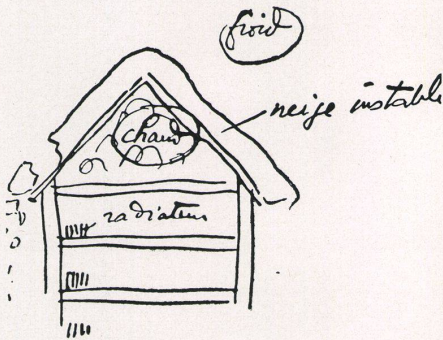 froid
neige instable
chaud
radiateur